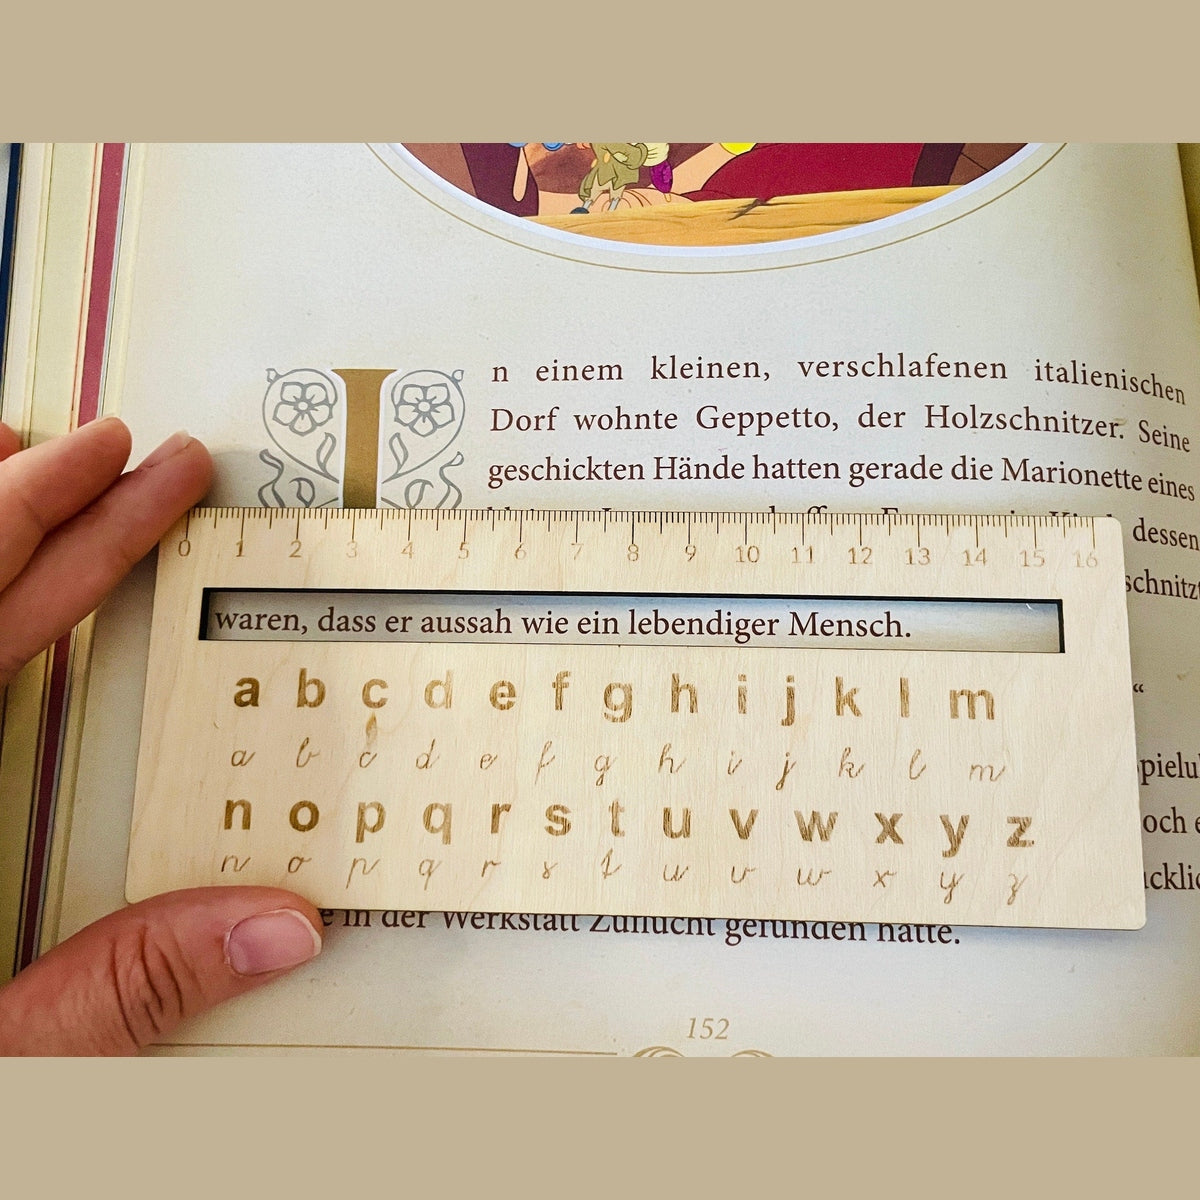 In einem kleinen, verschlafenen italienischen
Dorf wohnte Geppetto, der Holzschnitzer. Seine
geschickten Hände hatten gerade die Marionette eines
dessen
schnitzt
0 1 2 3 4 5 6 7 8 9 10 11 12 13 14 15 16
waren, dass er aussah wie ein lebendiger Mensch.
a b c d e f g h i j k l m
“
a b c d e f g h i j k l m
pielu
n o p q r s t u v w x y z
och e
n o p q r s t u v w x y z
cklic
e in der Werkstatt Zuflucht gefunden hatte.
152